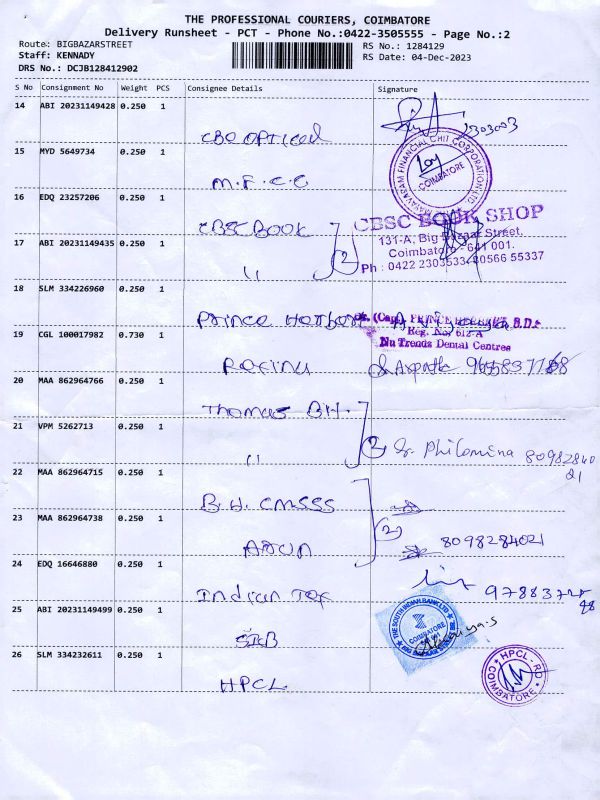 THE PROFESSIONAL COURIERS, COIMBATORE
Delivery Runsheet - PCT - Phone No.:0422-3505555 - Page No.:2
Route: BIGBAZARSTREET
RS No.: 1284129
Staff: KENNADY
RS Date: 04-Dec-2023
DRS No.: DCJB128412902
S No Consignment No Weight PCS Consignee Details Signature
14 ABI 20231149428 0.250 1
CBC OPTICAL
15 MYD 5649734 0.250 1
M.F.C.C
16 EDQ 23257206 0.250 1
CBSC BOOK
CBSC BOOK SHOP
131-A, Big Bazaar Street,
Coimbatore - 641 001.
Ph : 0422 2303533/40566 55337
17 ABI 20231149435 0.250 1
11 (2)
18 SLM 334226960 0.250 1
Prince Herbert
Reg. No: 612-A
Nu Trends Dental Centres
19 CGL 100017982 0.730 1
20 MAA 862964766 0.250 1
Thomas B.H.
21 VPM 5262713 0.250 1
11 (2) Sr. Philomina 8098284021
22 MAA 862964715 0.250 1
B.H. CMSSS
23 MAA 862964738 0.250 1
Arun (2) 8098284021
24 EDQ 16646880 0.250 1
Indian Tex
25 ABI 20231149499 0.250 1
SIB
THE SOUTH INDIAN BANK LTD
COIMBATORE
26 SLM 334232611 0.250 1
HPCL
HPCL-RD
COIMBATORE